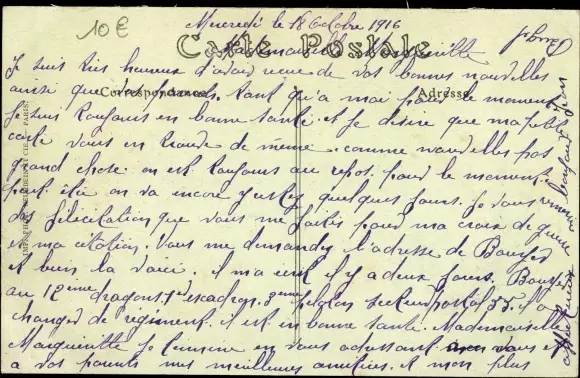 10€
Mercredi le 18 Octobre 1916
Carte Postale
Mademoiselle Margueritte
Je suis très heureux d'avoir reçue de vos bonnes nouvelles
Correspondance
Adresse
ainsi que parents. Tant qu'a moi pour le moment
je suis toujours en bonne santé. et je désire que ma petite
carte vous en trouve de même. comme nouvelles pas
grand chose on est toujours au repos. pour le moment
peut être on va encore y rester quelques jours. Je vous remercie
des félicitation que vous me faites pour ma croix de guerre
et ma citation. Vous me demandez l'adresse de
et bien la voici. il m'a écrit il y a deux jours.
au 12ème dragons, 1er escadron, 3ème peloton secteur postal 55. il a
changer de régiment. il est en bonne santé. Mademoiselle
Margueritte je termine en vous adressant vous et
a vos parents mes meilleures amitiés. et mon plus